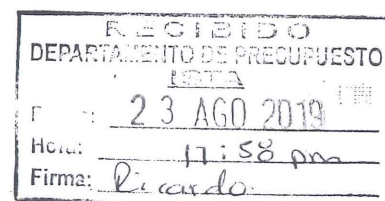 RECIBIDO
DEPARTAMENTO DE PRESUPUESTO
23 AGO 2019
Hora: 17:58 pm
Firma: Ricardo.